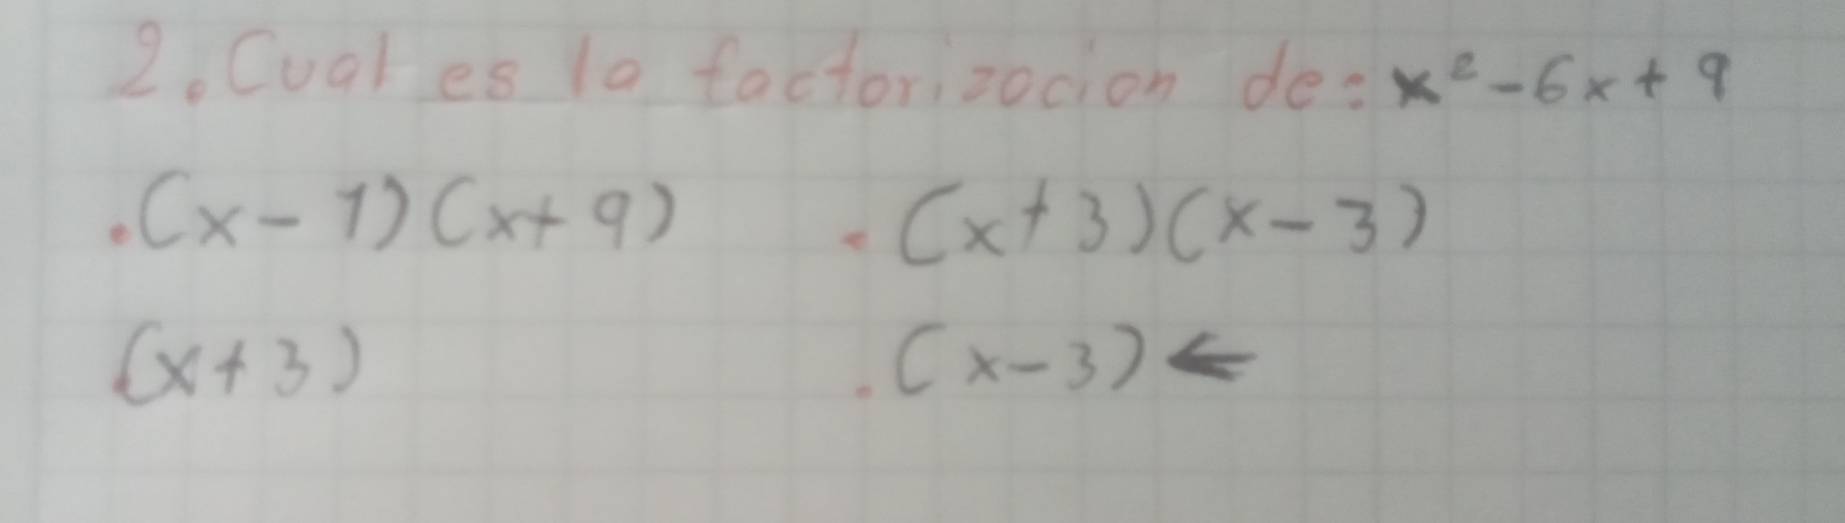 2. Cual es la factorizacion de: x² - 6x + 9
. (x - 1) (x + 9) . (x + 3) (x - 3)
. (x + 3) . (x - 3) ←